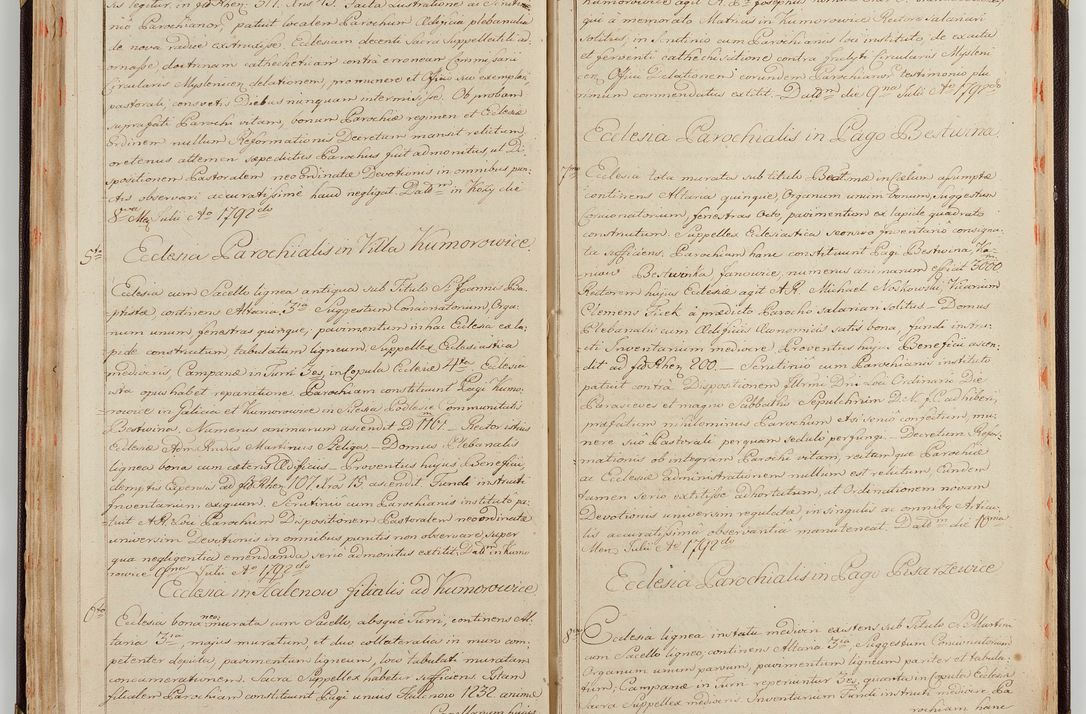 nio Parochianor, patuit localem Parochum Ædificia plebanalia
de nova radice extruxisse, Ecclesiam decenti Sacra Supellectili ad-
ornasse, doctrinam catecheticam contra erroneam Commissarii
Circularis Myslenicen delationem, pro munere et Officio suo exemplari
pastorali, consvetis Diebus nunquam intermisisse. Ob probam
suprafati Parochi vitam, bonum Parochiæ regimen et Ecclesiæ
Ordinem nullum Reformationis Decretum mansit relictum,
oretenus attamen sæpedictus Parochus fuit admonitus, ut Di-
spositionem Pastoralem neo ordinatæ Devotionis in omnibus pun-
ctis observari accuratissime haud negligat. Datt in Kozy die
8va Mez Julii Ao 1792do
5to Ecclesia Parochialis in Villa Kumorowice
Ecclesia cum Sacello lignea antiqua sub Titulo S. Joannis Ba-
ptistæ continens Altaria 3ia Suggestum Concionatorium, Orga-
num unum, fenestras quinque, pavimentum in hac Ecclesia ex la-
pide constructum tabulatum ligneum, Suppellex Ecclesiastica
mediocris, Campanæ in Turri 3es, in Copula Ecclesiæ 4ta. Ecclesia
ista opus habet reparatione. Parochiam constituunt Pagi Kumo-
rowice in Galicia et Kumorowice in Silesia Ecclesiæ Communitati
Bestwina. Numerus animarum ascendit ad 1161. Rector istius
Ecclesiæ Adm Rndus Martinus Peliga - Domus Plebanalis
lignea bona cum cæteris Ædificiis - Proventus hujus Beneficii,
demptis Expensis ad fl Rhen 107 Xros 15 ascendit. Fundi instructi
Inventarium exiguum. Scrutinio cum Parochianis instituto pa-
tuit A. R. Loci Parochum Dispositionem Pastoralem neo ordinatæ
universim Devotionis in omnibus punctis non observare, super
qua negligentia emendanda serio admonitus extitit. Datt in Kumo
rowice 9na Julii Ao 1792do
6to Ecclesia in Halcnow filialis ad Kumorowice
Ecclesia bona murata cum Sacello, absque Turri, continens Al-
taria 3ia, majus muratum et duo collateralia in muro com-
petenter depicta, pavimentum ligneum, loco tabulati muratam
concamerationem. Sacra Suppellex habetur sufficiens. Istam
filialem Parochiam constituunt Pagi unius Halcnow 1232 animæ
qui a memorato Matricis in Kumorowice Rectore Salariari
solitus, in Scrutinio cum Parochianis loci instituto, de exacta
et ferventi cathechisatione contra Inclyti Circularis Mysleni
cen Officii Delationem eorundem Parochianor testimonio plu
rimum commendatus extitit. Datt die 9na Julii Ao 1792do
Ecclesia Parochialis in Pago Bestwina
7mo Ecclesia tota murata sub titulo Beatæ in Cælum assumptæ
continens Altaria quinque, Organum unum bonum, Suggestum
Concionatorium, fenestras Octo, pavimentum ex lapide quadrato
constructum. Suppellex Ecclesiastica seorsivo Inventario consigna-
ta sufficiens. Parochiam hanc constituunt Pagi Bestwina, Ka-
niow Bestwinka Janowice, numerus animarum efficit 3000.
Rectorem hujus Ecclesiæ agit A. R. Michael Noskowski, Vicarium
Clemens Firek a prædicto Parocho salariari solitus - Domus
Plebanalis cum Ædificiis Æconomicis satis bona, fundi instru-
cti Inventarium mediocre. Proventus hujus Beneficii ascen-
dit ad fl Rhen 200. - Scrutinio cum Parochianis instituto
patuit contra Dispositionem Illmi Dni Loci Ordinarii Die
Parasceves et magno Sabbatho Sepulchrum D. N. J. C. adhiberi,
præfatum nihilominus Parochum etsi senio confectum mu-
nere suo Pastorali perquam sedulo perfungi. - Decretum Refor-
mationis ob integram Parochi vitam, rectamque Parochiæ
ac Ecclesiæ administrationem nullum est relictum. Eundem
tamen serio extitisse adhortatum, ut Ordinationem novam
Devotionis universim regulatæ, in singulis ac omnibq Articu-
lis accuratissima observantia manuteneat. Datt die 10ma
Men Julii Ao 1792do
Ecclesia Parochialis in Pago Pisarzewice
8vo Ecclesia lignea in statu mediocri existens sub Titulo S. Martini
cum Sacello ligneo, continens Altaria 3ia, Suggestum Concionatorium
Organum unum parvum, pavimentum ligneum pariter et tabula-
tum, Campanæ in Turri reperiuntur 3es, quarta in Copula Ecclesiæ
Sacra Suppellex mediocris. Inventarium Fundi instructi mediocre Pa
rochiam hanc